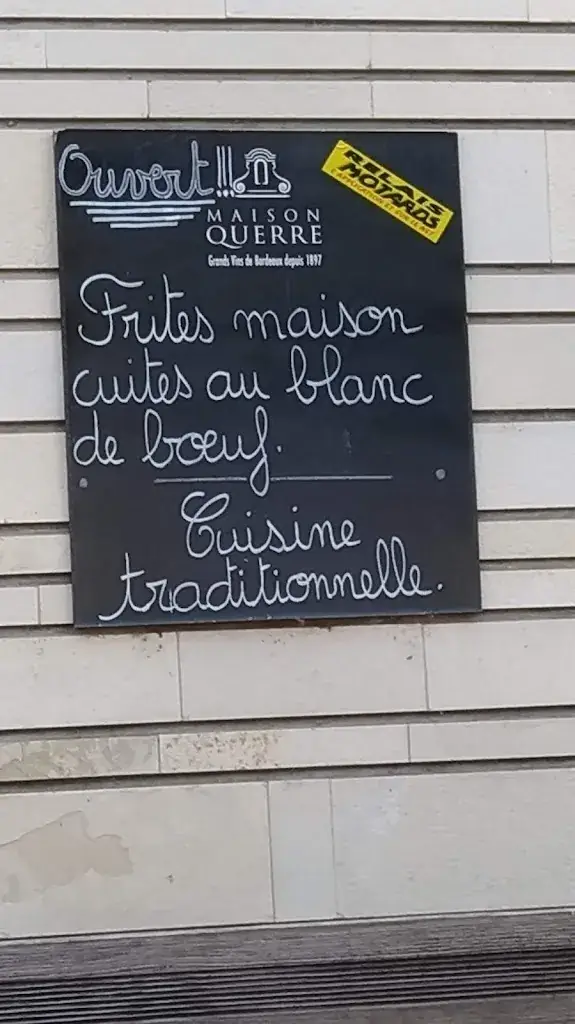 Ouvert!!!
MAISON
QUERRE
Grands Vins de Bordeaux depuis 1897
RELAIS
MOTARDS
L'APPLICATION ET SUR LE NET
Frites maison
cuites au blanc
de bœuf.
Cuisine
traditionnelle.